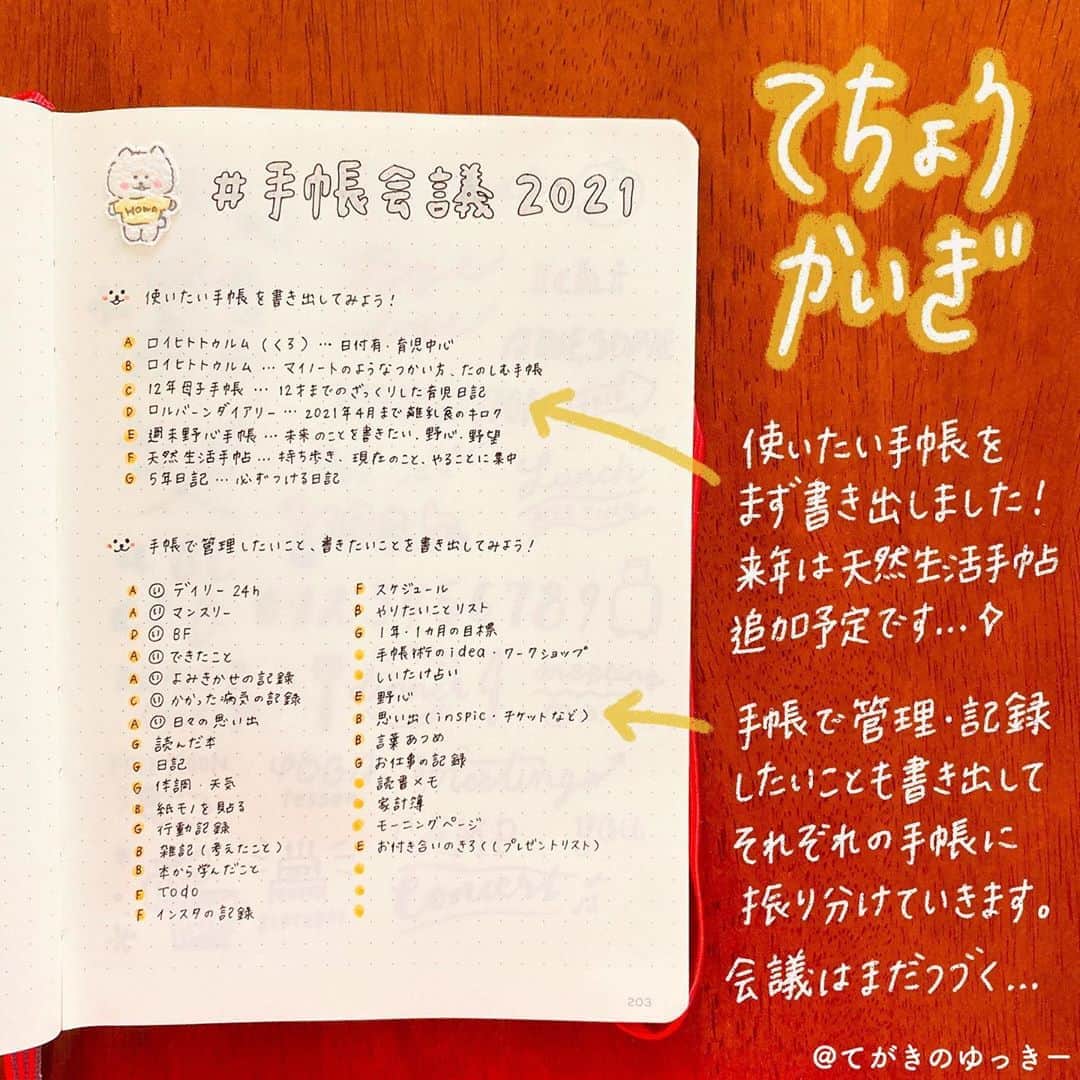 HOWA
#手帳会議 2021
使いたい手帳を書き出してみよう!
A ロイヒトトゥルム(くろ)…日付有・育児中心
B ロイヒトトゥルム…マイノートのようなつかい方、たのしむ手帳
C 12年母子手帳…12才までのざっくりした育児日記
D ロルバーンダイアリー…2021年4月まで離乳食のキロク
E 週末野心手帳…未来のことを書きたい、野心・野望
F 天然生活手帖…持ち歩き、現在のこと、やることに集中
G 5年日記…必ずつける日記
手帳で管理したいこと、書きたいことを書き出してみよう!
A い デイリー24h
A い マンスリー
D い BF
A い できたこと
A い よみきかせの記録
C い かかった病気の記録
A い 日々の思い出
G 読んだ本
G 日記
G 体調・天気
B 紙モノを貼る
G 行動記録
B 雑記(考えたこと)
B 本から学んだこと
F Todo
F インスタの記録
F スケジュール
B やりたいことリスト
G 1年・1カ月の目標
手帳術のidea・ワークショップ
しいたけ占い
E 野心
B 思い出(inspic・チケットなど)
B 言葉あつめ
G お仕事の記録
読書メモ
家計簿
モーニングページ
E お付き合いのきろく(プレゼントリスト)
203
てちょう
かいぎ
使いたい手帳を
まず書き出しました!
来年は天然生活手帖
追加予定です...
手帳で管理・記録
したいことも書き出して
それぞれの手帳に
振り分けていきます。
会議はまだつづく...
@てがきのゆっきー